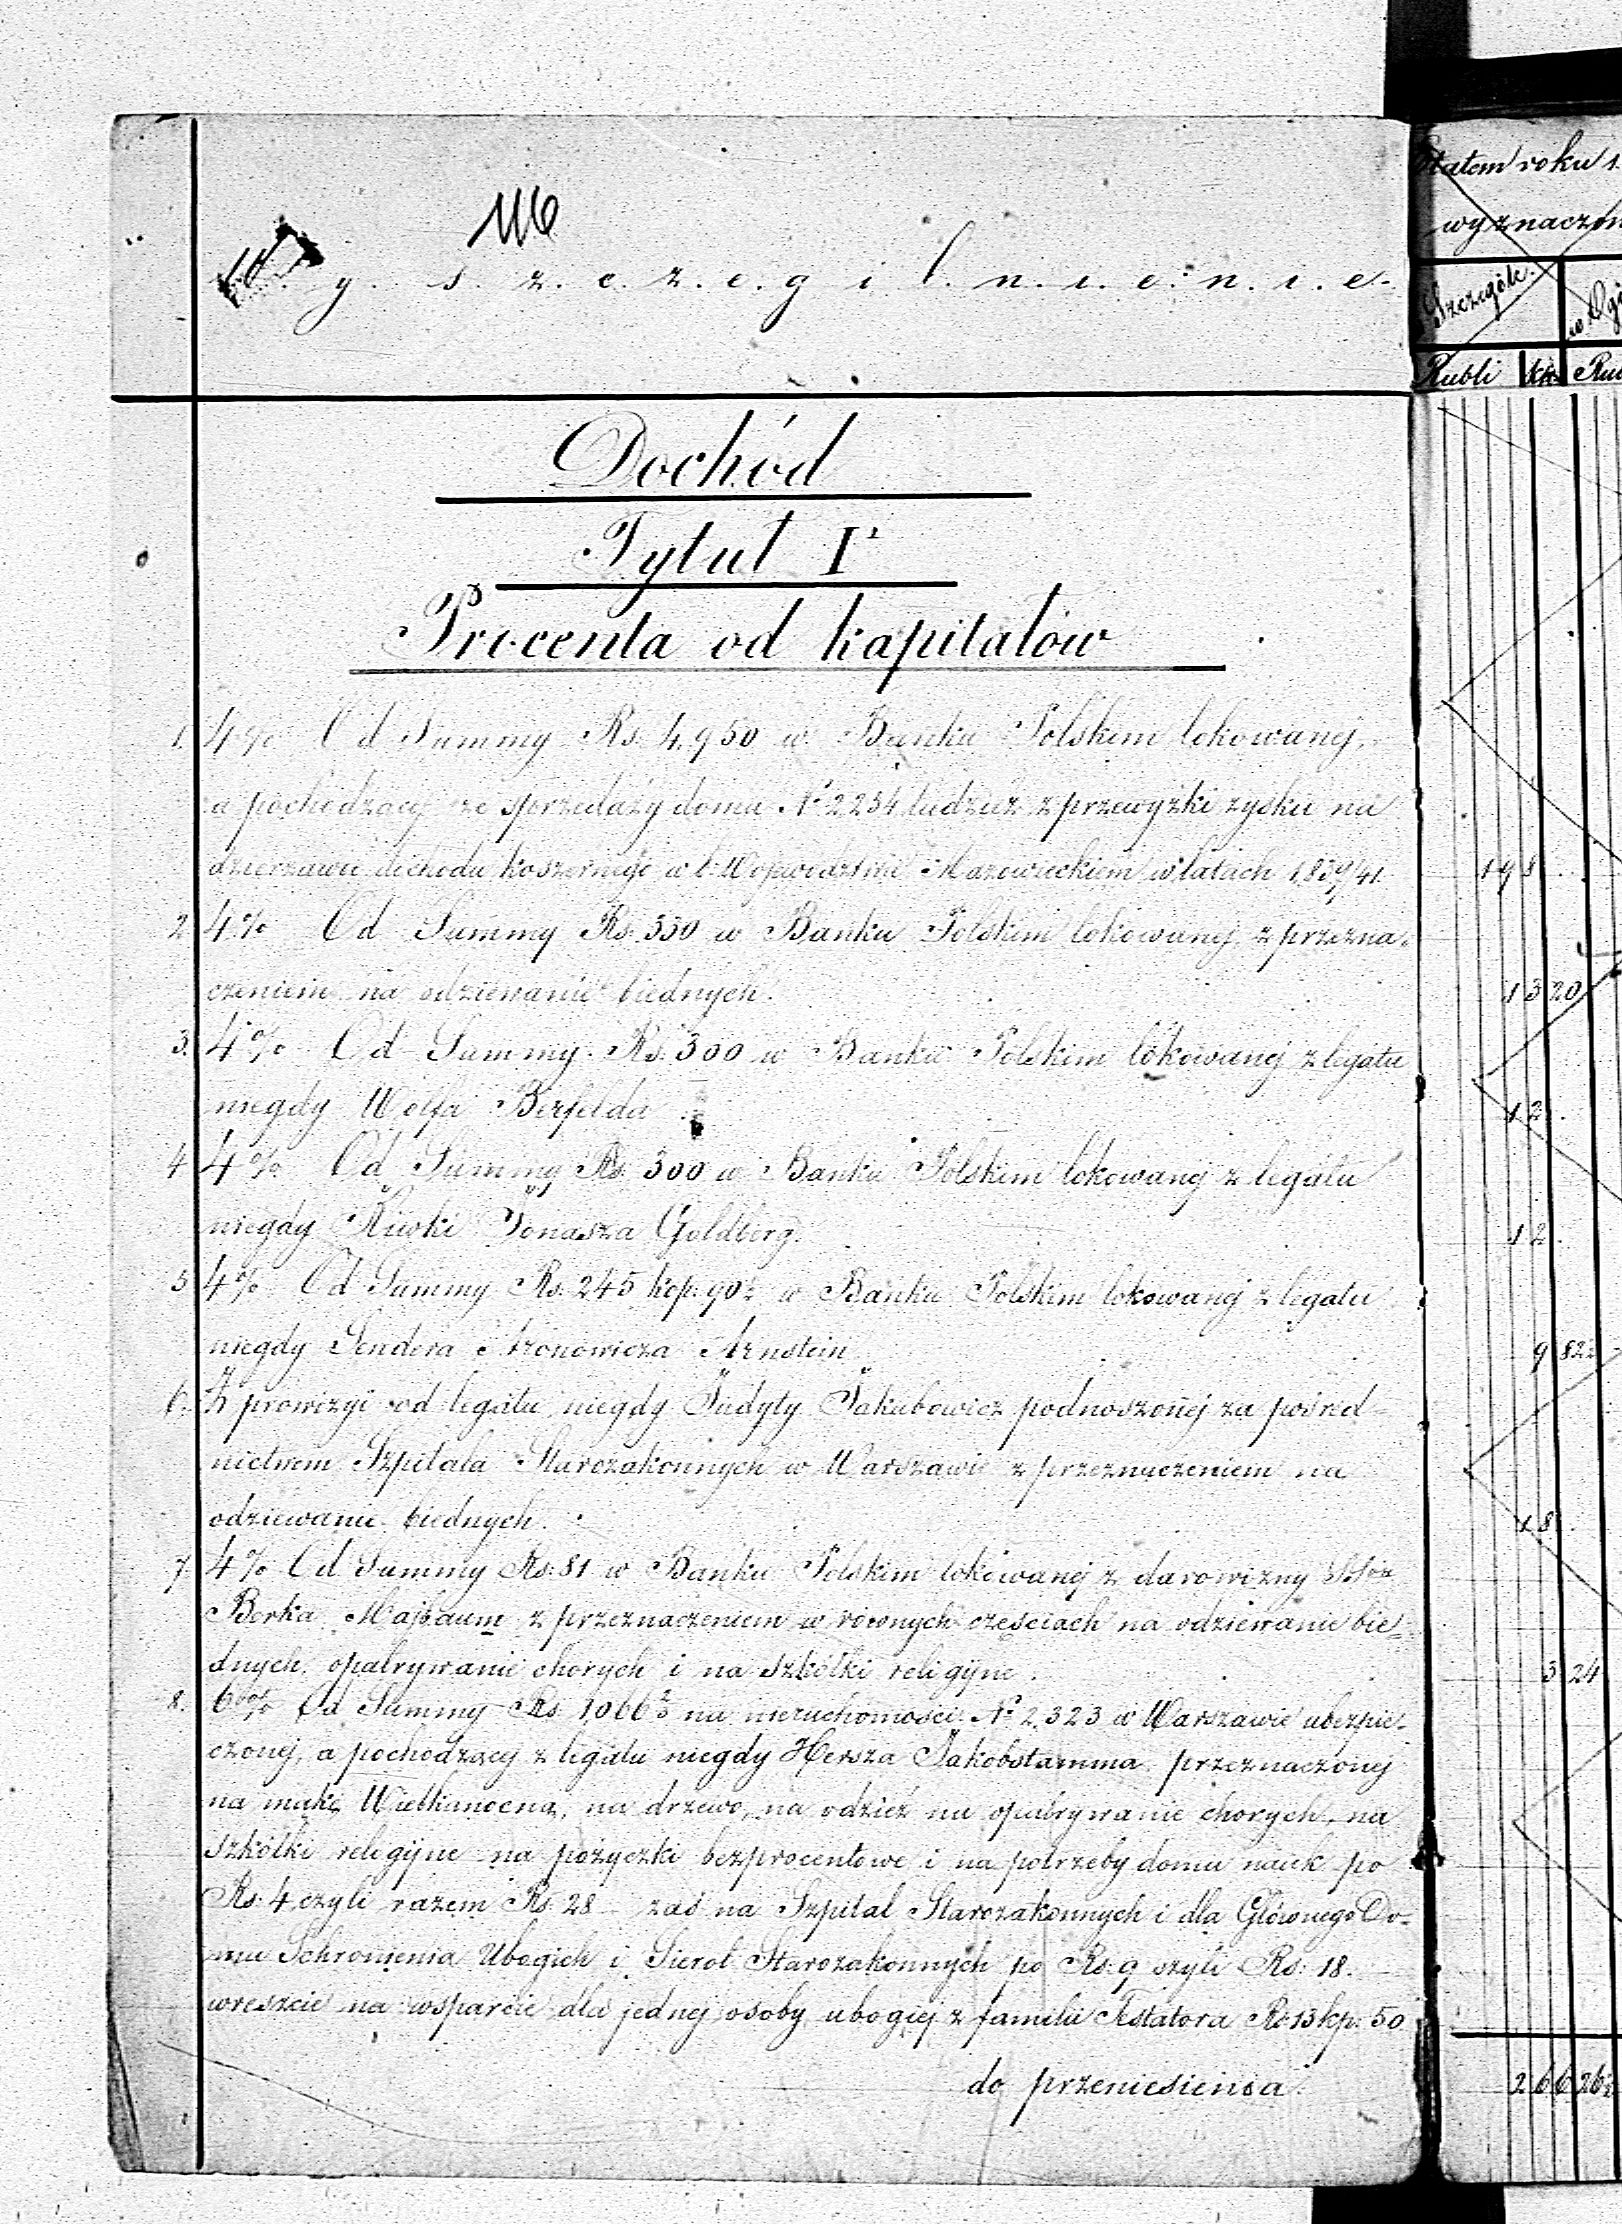 116
W. y. s. z. c. z. e. g ó l. n. i. e. n. i. e.
Dochód
Tytuł I
Procenta od kapitałów
1. 4% Od Summy Rs. 4,950 w Banku Polskim lokowanej,
a pochodzącej ze sprzedaży domu No 2234 tudzież z przewyżki zysku na
dzierzawie dochodu koszernego w b. Wojewodztwie Mazowieckiem w latach 1839/41
2 4% Od Summy Rs. 330 w Banku Polskim lokowanej z przezna-
czeniem na odziewanie biednych.
3. 4% Od Summy Rs. 300 w Banku Polskim lokowanej z legatu
niegdy Wolfa Berfelda
4 4% Od Summy Rs. 300 w Banku Polskim lokowanej z legatu
niegdy Riwki Jonasza Goldberg.
5 4% Od Summy Rs. 245 kop. 90½ w Banku Polskim lokowanej z legatu
niegdy Sendera Aronowicza Arnstein
6. Z prowizyi od legatu niegdy Judyty Jakubowicz podnoszonej za pośred-
nictwem Szpitala Starozakonnych w Warszawie z przeznaczeniem na
odziewanie biednych.
7 4% Od Summy Rs. 81 w Banku Polskim lokowanej z darowizny
Berka Majbaum z przeznaczeniem w równych częściach na odziewanie bie-
dnych, opatrywanie chorych i na szkółki religijne.
8. 6% Od Summy Rs 1,066 na nieruchomości No 2,323 w Warszawie ubezpie-
czonej, a pochodzącej z legatu niegdy Hersza Jakobstamma przeznaczonej
na mąkę Wielkanocną, na drzewo, na odzież na opatrywanie chorych, na
szkółki religijne na pożyczki bezprocentowe i na potrzeby domu nauk po
Rs. 4 czyli razem Rs. 28 – zaś na Szpital Starozakonnych i dla Głównego Do-
mu Schronienia Ubogich i Sierot Starozakonnych po Rs. 9 czyli Rs. 18.
wreszcie na wsparcie dla jednej osoby ubogiej z familii Testatora Rs. 13 kp. 50
do przeniesienia.
Etatem roku 1
wyznaczon
Szczegół. w Ogó
Rubli kp. Rub
198
13 20
12
12
9 82½
18
3 24
266 26½